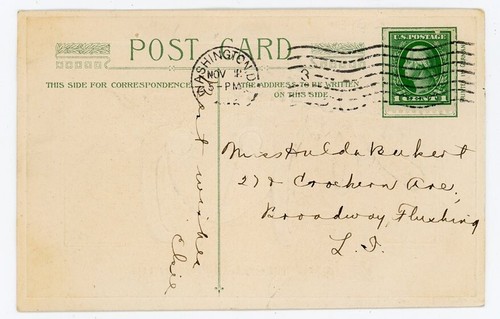 POST CARD
THIS SIDE FOR CORRESPONDENCE.
THE ADDRESS TO BE WRITTEN
ON THIS SIDE.
WASHINGTON, D.
NOV
PM
3
U.S. POSTAGE
1 CENT 1
Best wishes
Elsie
Miss Hulda
Ave.,
Broadway, Flushing
L. I.